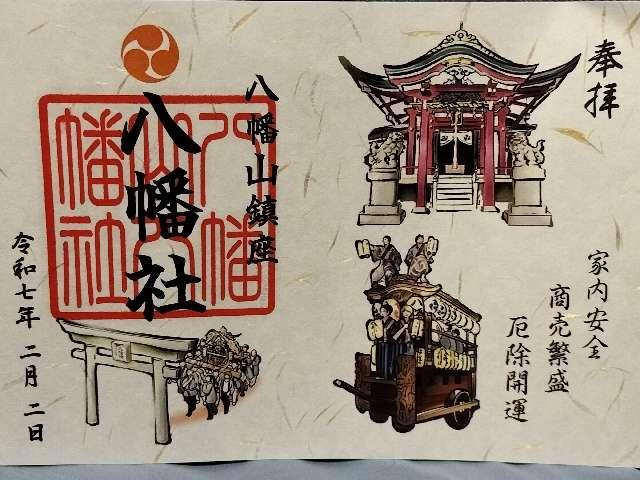 奉拝
家内安全
商売繁盛
厄除開運
八幡山鎮座
八幡社
令和七年 二月 二日